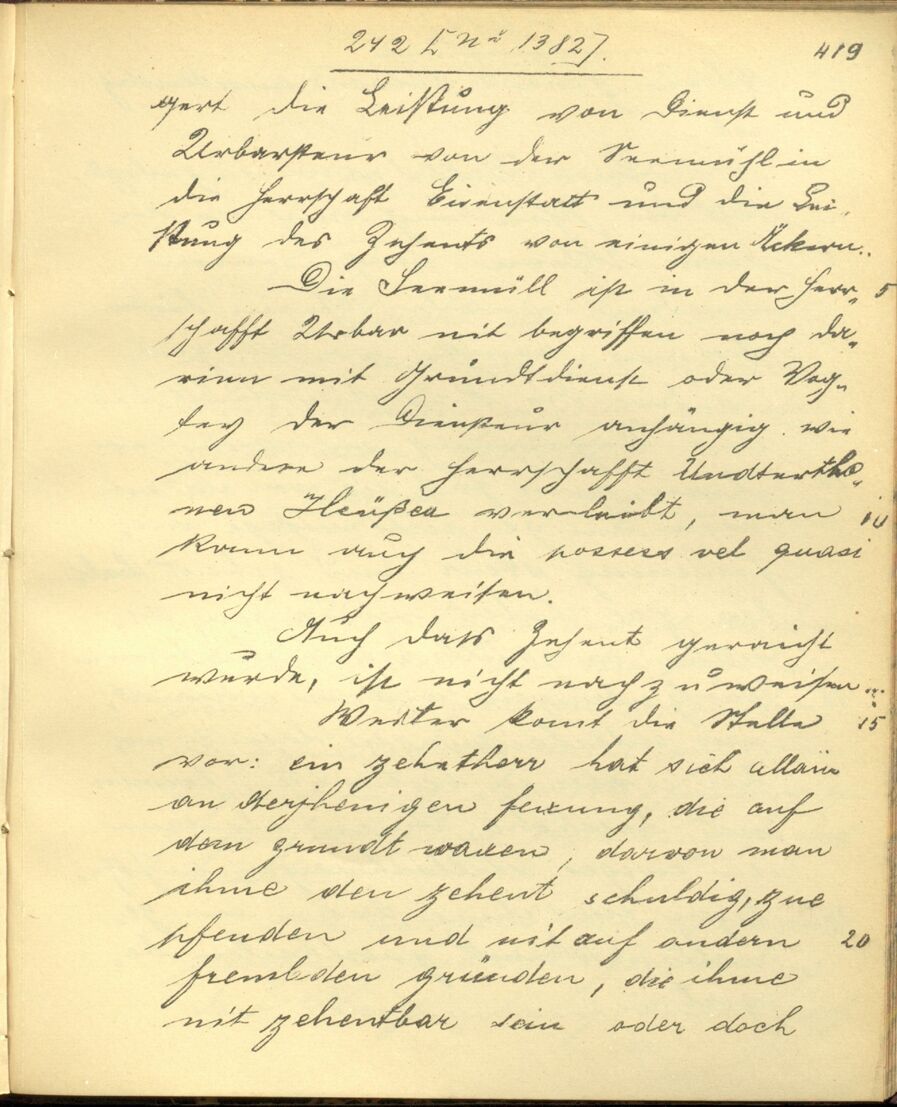 242 [Nr 1382].
419
gert die Leistung von Dienst und
Urbarsteur von der Seemühl in
die Herrschaft Eisenstatt und die Lei-
stung des Zehents von einigen Äckern..
Die Seemüll ist in der Herr- 5
schafft Urbar nit begriffen noch da-
rinn mit Grundtdienst oder Vog-
tey der anhängig wie
andere der Herrschafft Undtertha-
nen Heüßer verleibt, man 10
kann auch die possess vel quasi
nicht nachweisen.
Auch dass Zehent geraicht
wurde, ist nicht nachzuweisen...
Weiter komt die Stelle 15
vor: ein zehetherr hat sich allain
an derjhenigen fexung, die auf
dem grundt waxen, darvon man
ihme den zehent schuldig, zue
pfenden und nit auf andern 20
frembden gründen, die ihme
nit zehentbar sein oder doch